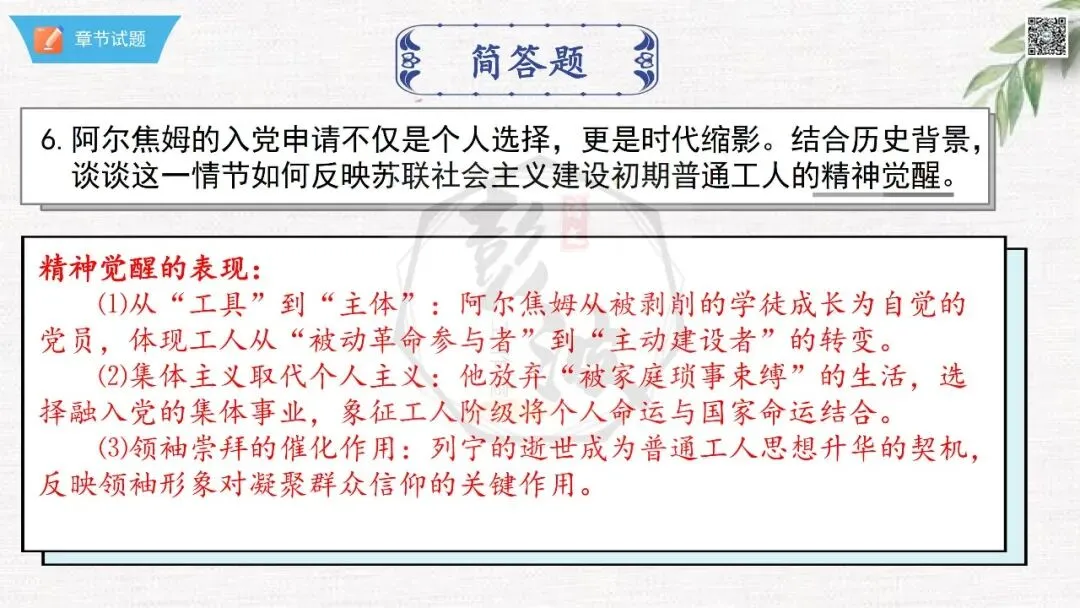 章节试题
简答题
6. 阿尔焦姆的入党申请不仅是个人选择，更是时代缩影。结合历史背景，
谈谈这一情节如何反映苏联社会主义建设初期普通工人的精神觉醒。
精神觉醒的表现：
(1)从“工具”到“主体”：阿尔焦姆从被剥削的学徒成长为自觉的
党员，体现工人从“被动革命参与者”到“主动建设者”的转变。
(2)集体主义取代个人主义：他放弃“被家庭琐事束缚”的生活，选
择融入党的集体事业，象征工人阶级将个人命运与国家命运结合。
(3)领袖崇拜的催化作用：列宁的逝世成为普通工人思想升华的契机，
反映领袖形象对凝聚群众信仰的关键作用。